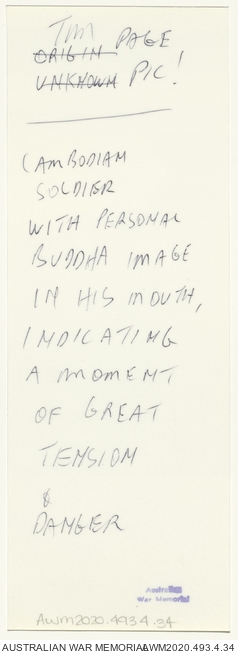 TIM
ORIGIN PAGE
UNKNOWN PIC!
CAMBODIAN
SOLDIER
WITH PERSONAL
BUDDHA IMAGE
IN HIS MOUTH,
INDICATING
A MOMENT
OF GREAT
TENSION
&
DANGER
Australian
War Memorial
AWM2020.493.4.34
AUSTRALIAN WAR MEMORIAL AWM2020.493.4.34